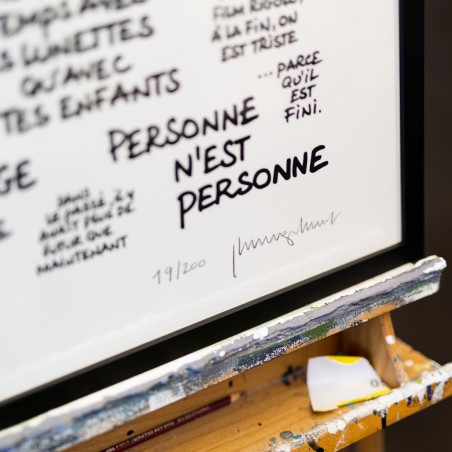 LUNETTES
QU'AVEC
TES ENFANTS
FILM RIGOLO,
À LA FIN, ON
EST TRISTE
...PARCE
QU'IL
EST
FINI.
PERSONNE
N'EST
PERSONNE
DANS
LE PASSÉ, IL Y
AVAIT PLUS DE
FUTUR QUE
MAINTENANT
19/200